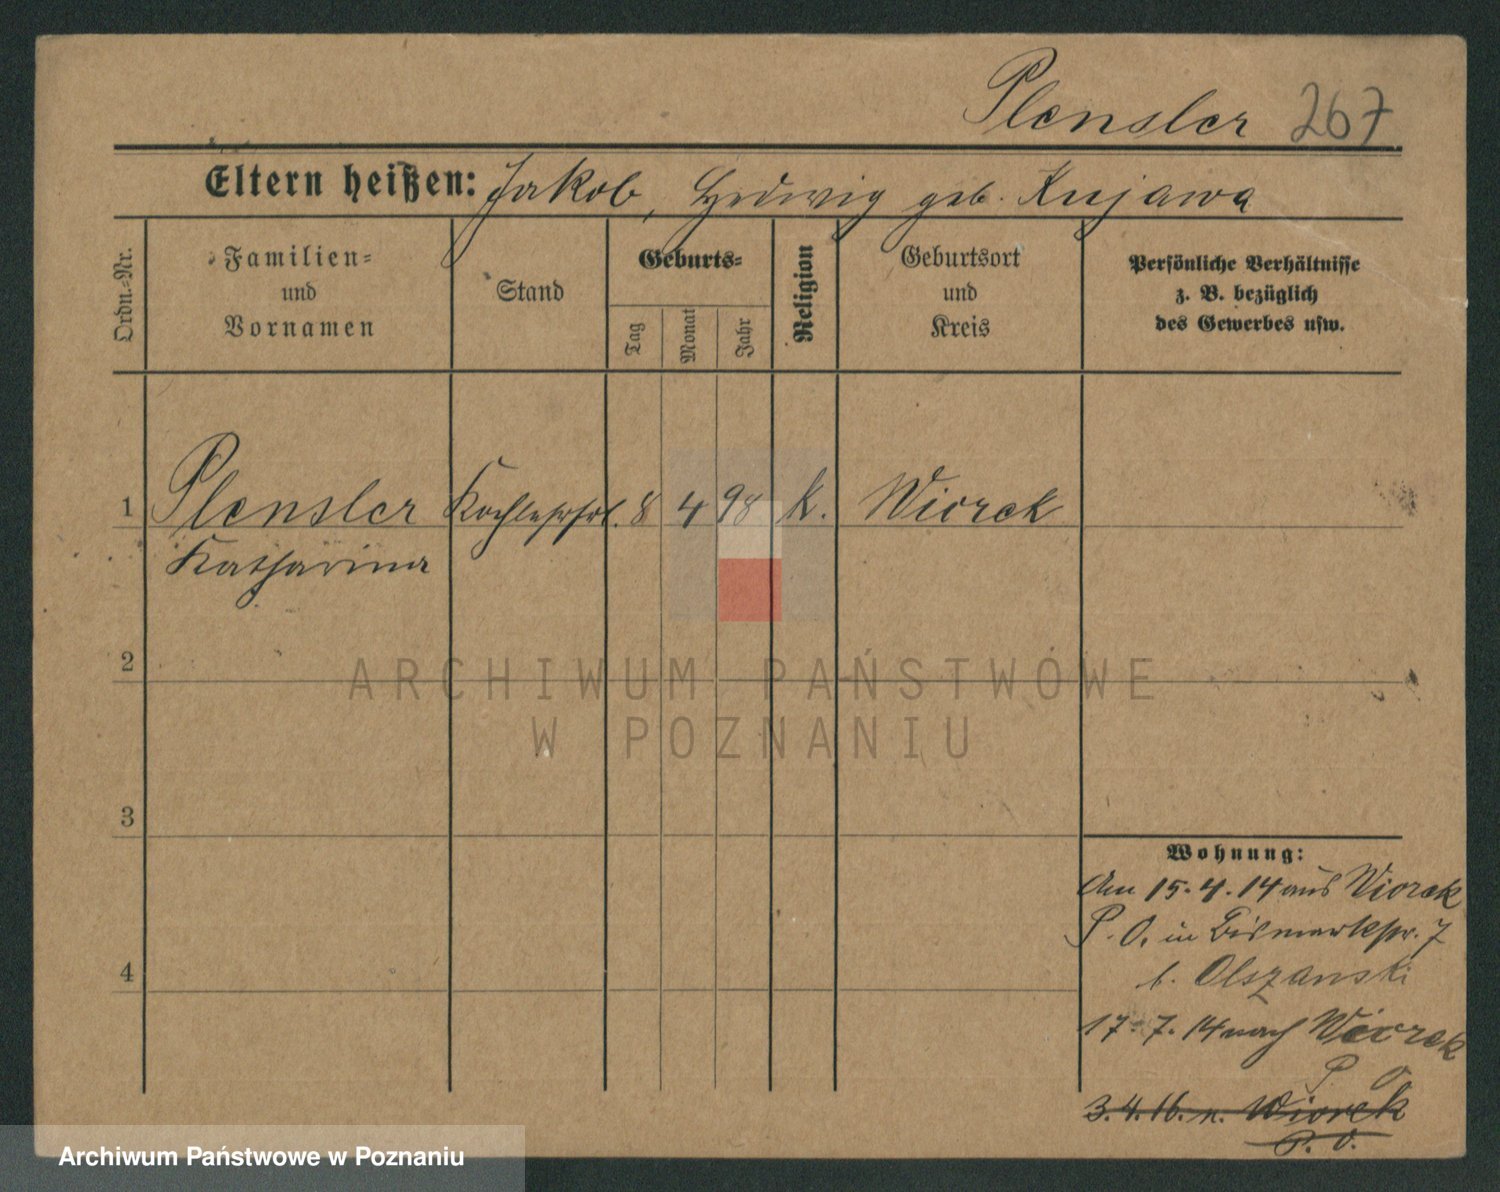 Plensler 267
Eltern heißen: Jakob, Hedwig geb. Kujawa
Ordn.-Nr.
Familien-
und
Vornamen
Stand
Geburts-
Tag
Monat
Jahr
Religion
Geburtsort
und
Kreis
Persönliche Verhältnisse
z. B. bezüglich
des Gewerbes usw.
1 Plensler Kochlehrfrl. 8 4 98 k. Wiorek
Katharina
2
ARCHIWUM PAŃSTWOWE
W POZNANIU
3
Wohnung:
Am 15.4.14 aus Wiorek
P. O. in Bismarkstr. 7
b. Olszanski
4
17.7.14 nach Wiorek
P O
3.4.16. n. Wiorek
P. O.
Archiwum Państwowe w Poznaniu